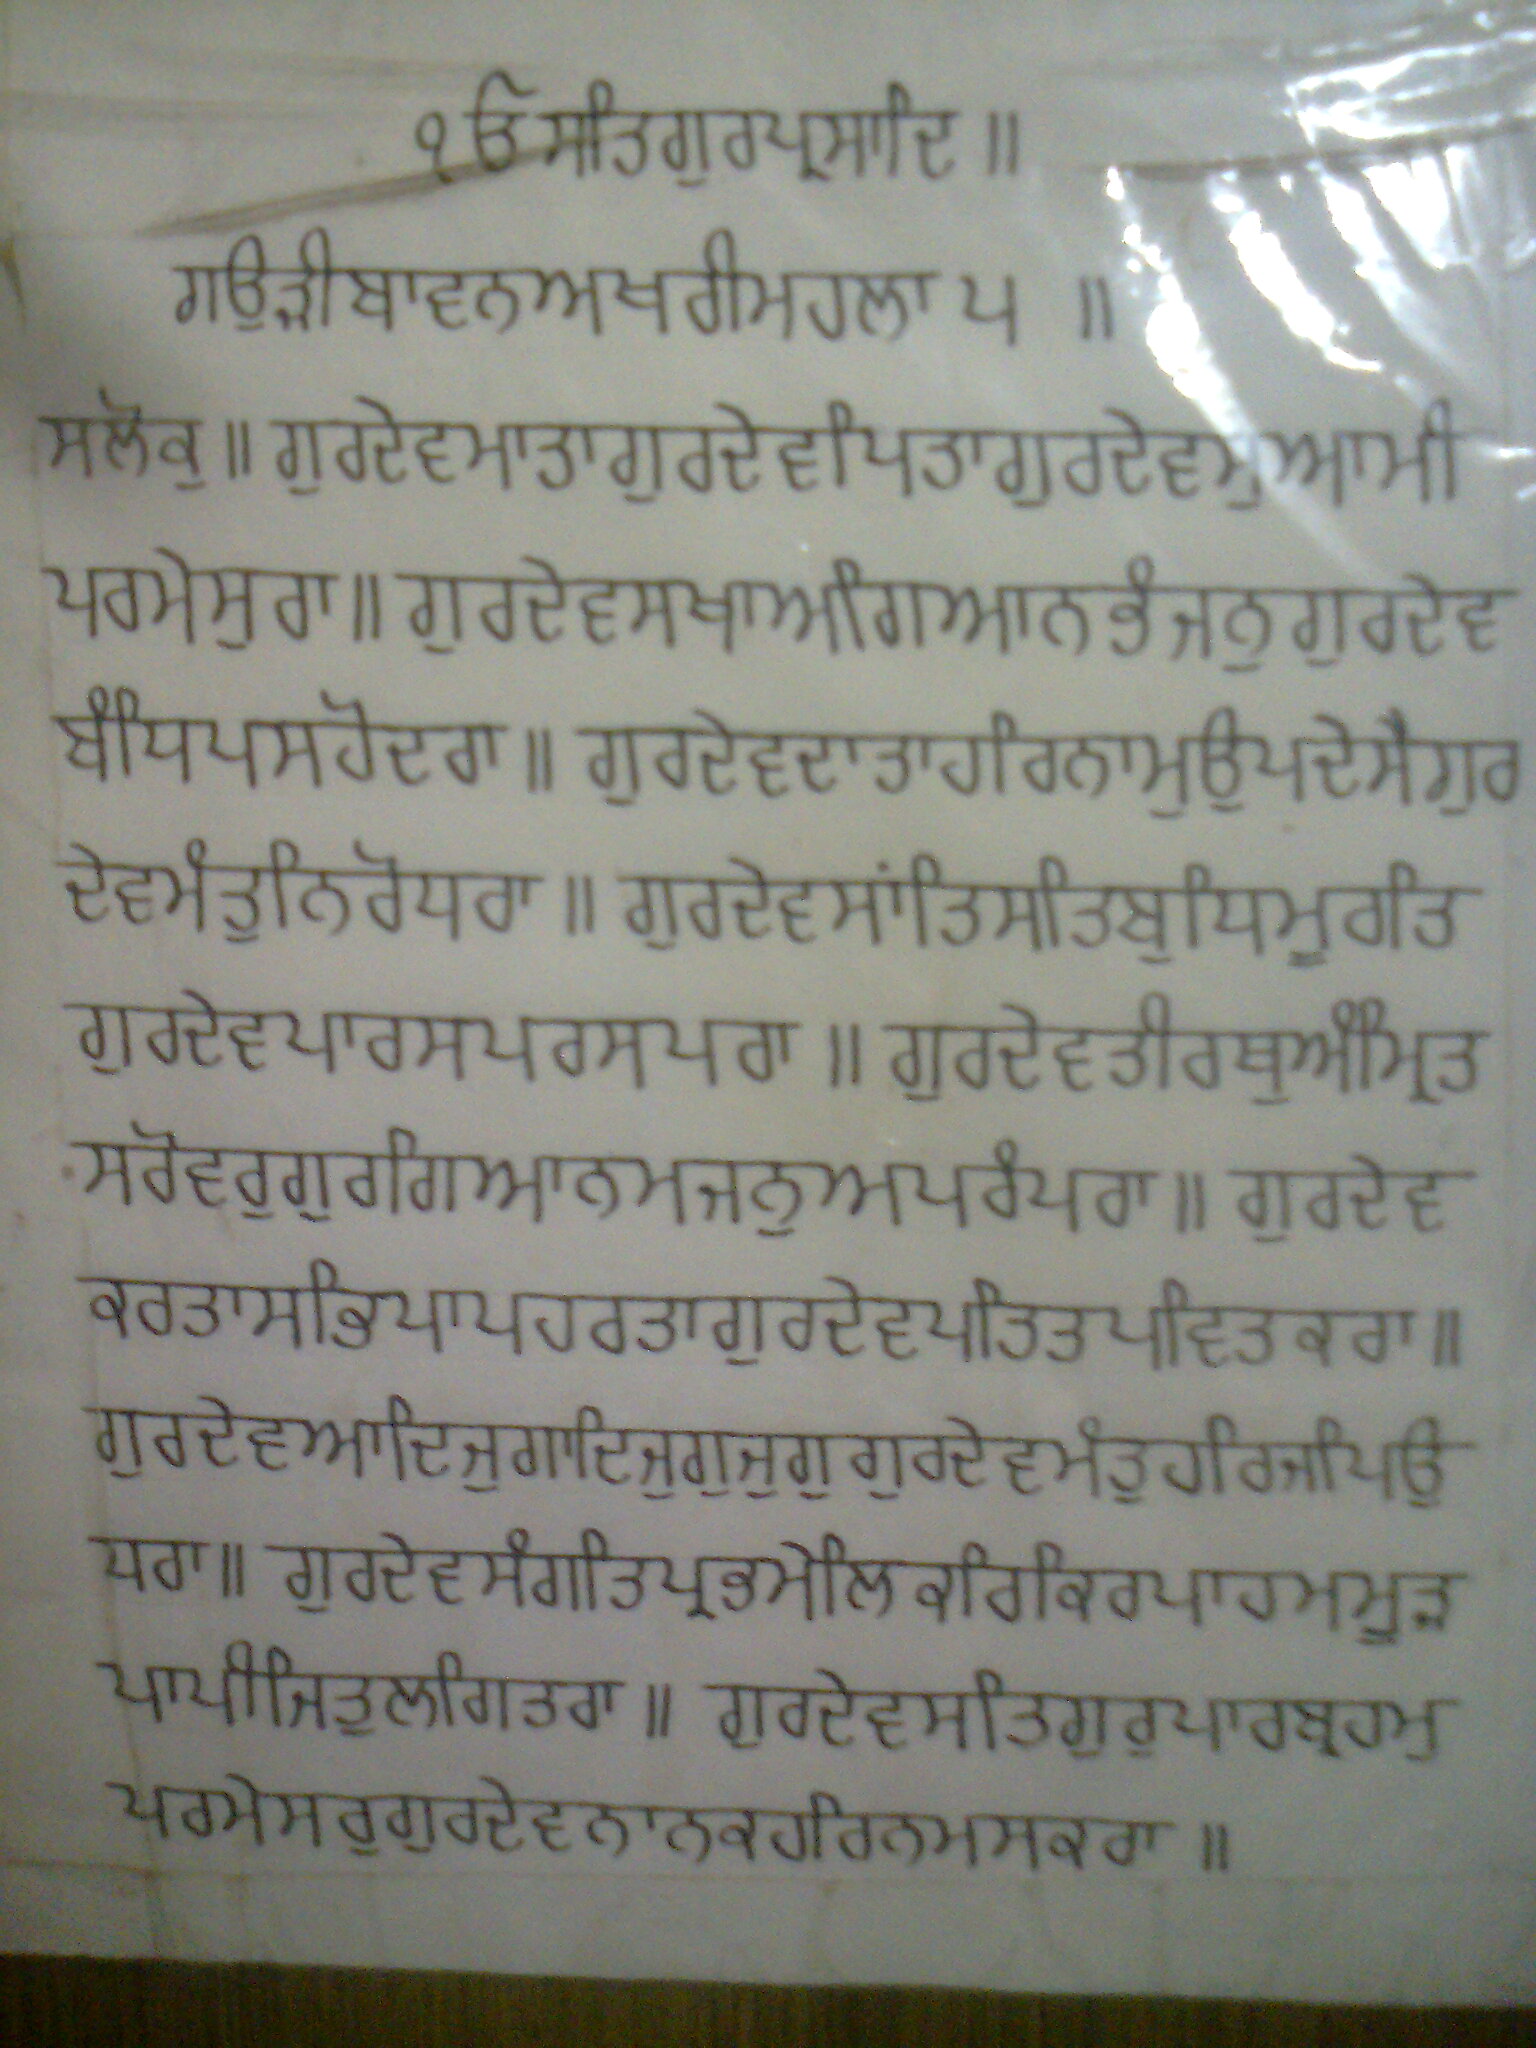 ੴ ਸਤਿਗੁਰਪ੍ਰਸਾਦਿ ॥
ਗਉੜੀਬਾਵਨਅਖਰੀਮਹਲਾ ੫ ॥
ਸਲੋਕੁ ॥ ਗੁਰਦੇਵਮਾਤਾਗੁਰਦੇਵਪਿਤਾਗੁਰਦੇਵਸੁਆਮੀ
ਪਰਮੇਸੁਰਾ ॥ ਗੁਰਦੇਵਸਖਾਅਗਿਆਨਭੰਜਨੁਗੁਰਦੇਵ
ਬੰਧਿਪਸਹੋਦਰਾ ॥ ਗੁਰਦੇਵਦਾਤਾਹਰਿਨਾਮੁਉਪਦੇਸੈਗੁਰ
ਦੇਵਮੰਤੁਨਿਰੋਧਰਾ ॥ ਗੁਰਦੇਵਸਾਂਤਿਸਤਿਬੁਧਿਮੂਰਤਿ
ਗੁਰਦੇਵਪਾਰਸਪਰਸਪਰਾ ॥ ਗੁਰਦੇਵਤੀਰਥੁਅੰਮ੍ਰਿਤ
ਸਰੋਵਰੁਗੁਰਗਿਆਨਮਜਨੁਅਪਰੰਪਰਾ ॥ ਗੁਰਦੇਵ
ਕਰਤਾਸਭਿਪਾਪਹਰਤਾਗੁਰਦੇਵਪਤਿਤਪਵਿਤਕਰਾ ॥
ਗੁਰਦੇਵਆਦਿਜੁਗਾਦਿਜੁਗੁਜੁਗੁਗੁਰਦੇਵਮੰਤੁਹਰਿਜਪਿਉ
ਧਰਾ ॥ ਗੁਰਦੇਵਸੰਗਤਿਪ੍ਰਭਮੇਲਿਕਰਿਕਿਰਪਾਹਮਮੂੜ
ਪਾਪੀਜਿਤੁਲਗਿਤਰਾ ॥ ਗੁਰਦੇਵਸਤਿਗੁਰੁਪਾਰਬ੍ਰਹਮੁ
ਪਰਮੇਸਰੁਗੁਰਦੇਵਨਾਨਕਹਰਿਨਮਸਕਰਾ ॥